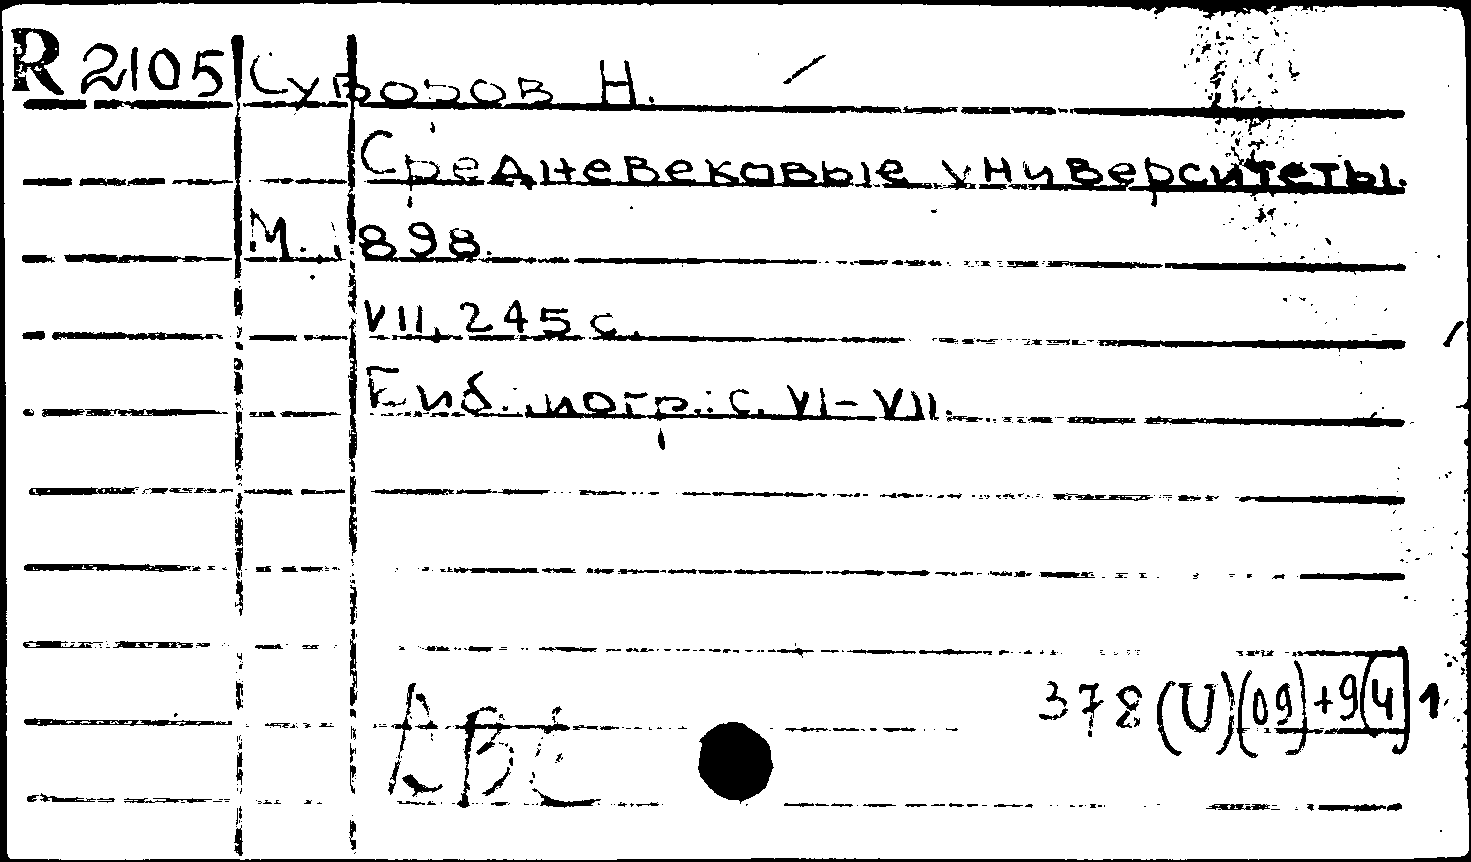 R 2105 Суворов Н.
Средневековые университеты.
М., 1898.
VII, 245 с.
Библиогр.: с. VI-VII.
378(U)(09)+9(4)1